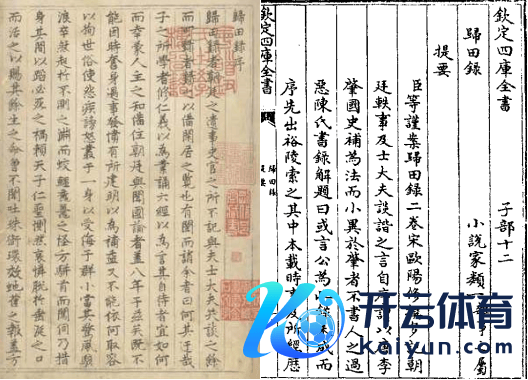 欽定四庫全書 子部十二
歸田錄 小說家類 屬
提要
臣等謹案歸田錄二卷宋歐陽修 朝
廷軼事及士大夫談諧之言自序 以 李
肇國史補為法而小異於肇者不書人之過
惡陳氏書錄解題曰或言公為 錄未成而
序先出裕陵索之其中本載時 及所經歷
欽定四庫全書
歸田錄
提要
歸田錄序
歸田錄者朝廷之遺事史官之所不記與夫士大夫笑談之餘
而可錄者錄之以備閑居之覽也有聞而誚余者曰何其迂哉
子之所學者修仁義以為業誦六經以為言其自待者宜如何
而幸蒙人主之知備位朝廷與聞國論者蓋八年于茲矣既不
能因時奮身遇事發憤有所建明以為補益又不能依阿取容
以徇世俗使怨疾謗怒叢于一身以受侮于群小當其驚風駭
浪卒然起於不測之淵而蛟鱷黿鼉之怪方駢首而闖伺乃措
身其間以蹈必死之禍賴天子仁聖惻然哀憐脫於垂涎之口
而活之以賜其餘生之命曾不聞吐珠銜環效蛇雀之報蓋方
开云体育
kaiyun.com